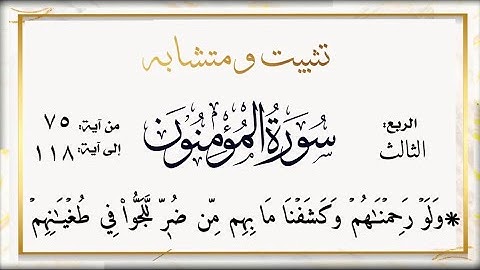 تثبيت و متشابه
الربع:
الثالث
سورة المؤمنون
من آية: ٧٥
إلى آية: ١١٨
*وَلَوۡ رَحِمۡنَٰهُمۡ وَكَشَفۡنَا مَا بِهِم مِّن ضُرّٖ لَّلَجُّواْ فِي طُغۡيَٰنِهِمۡ